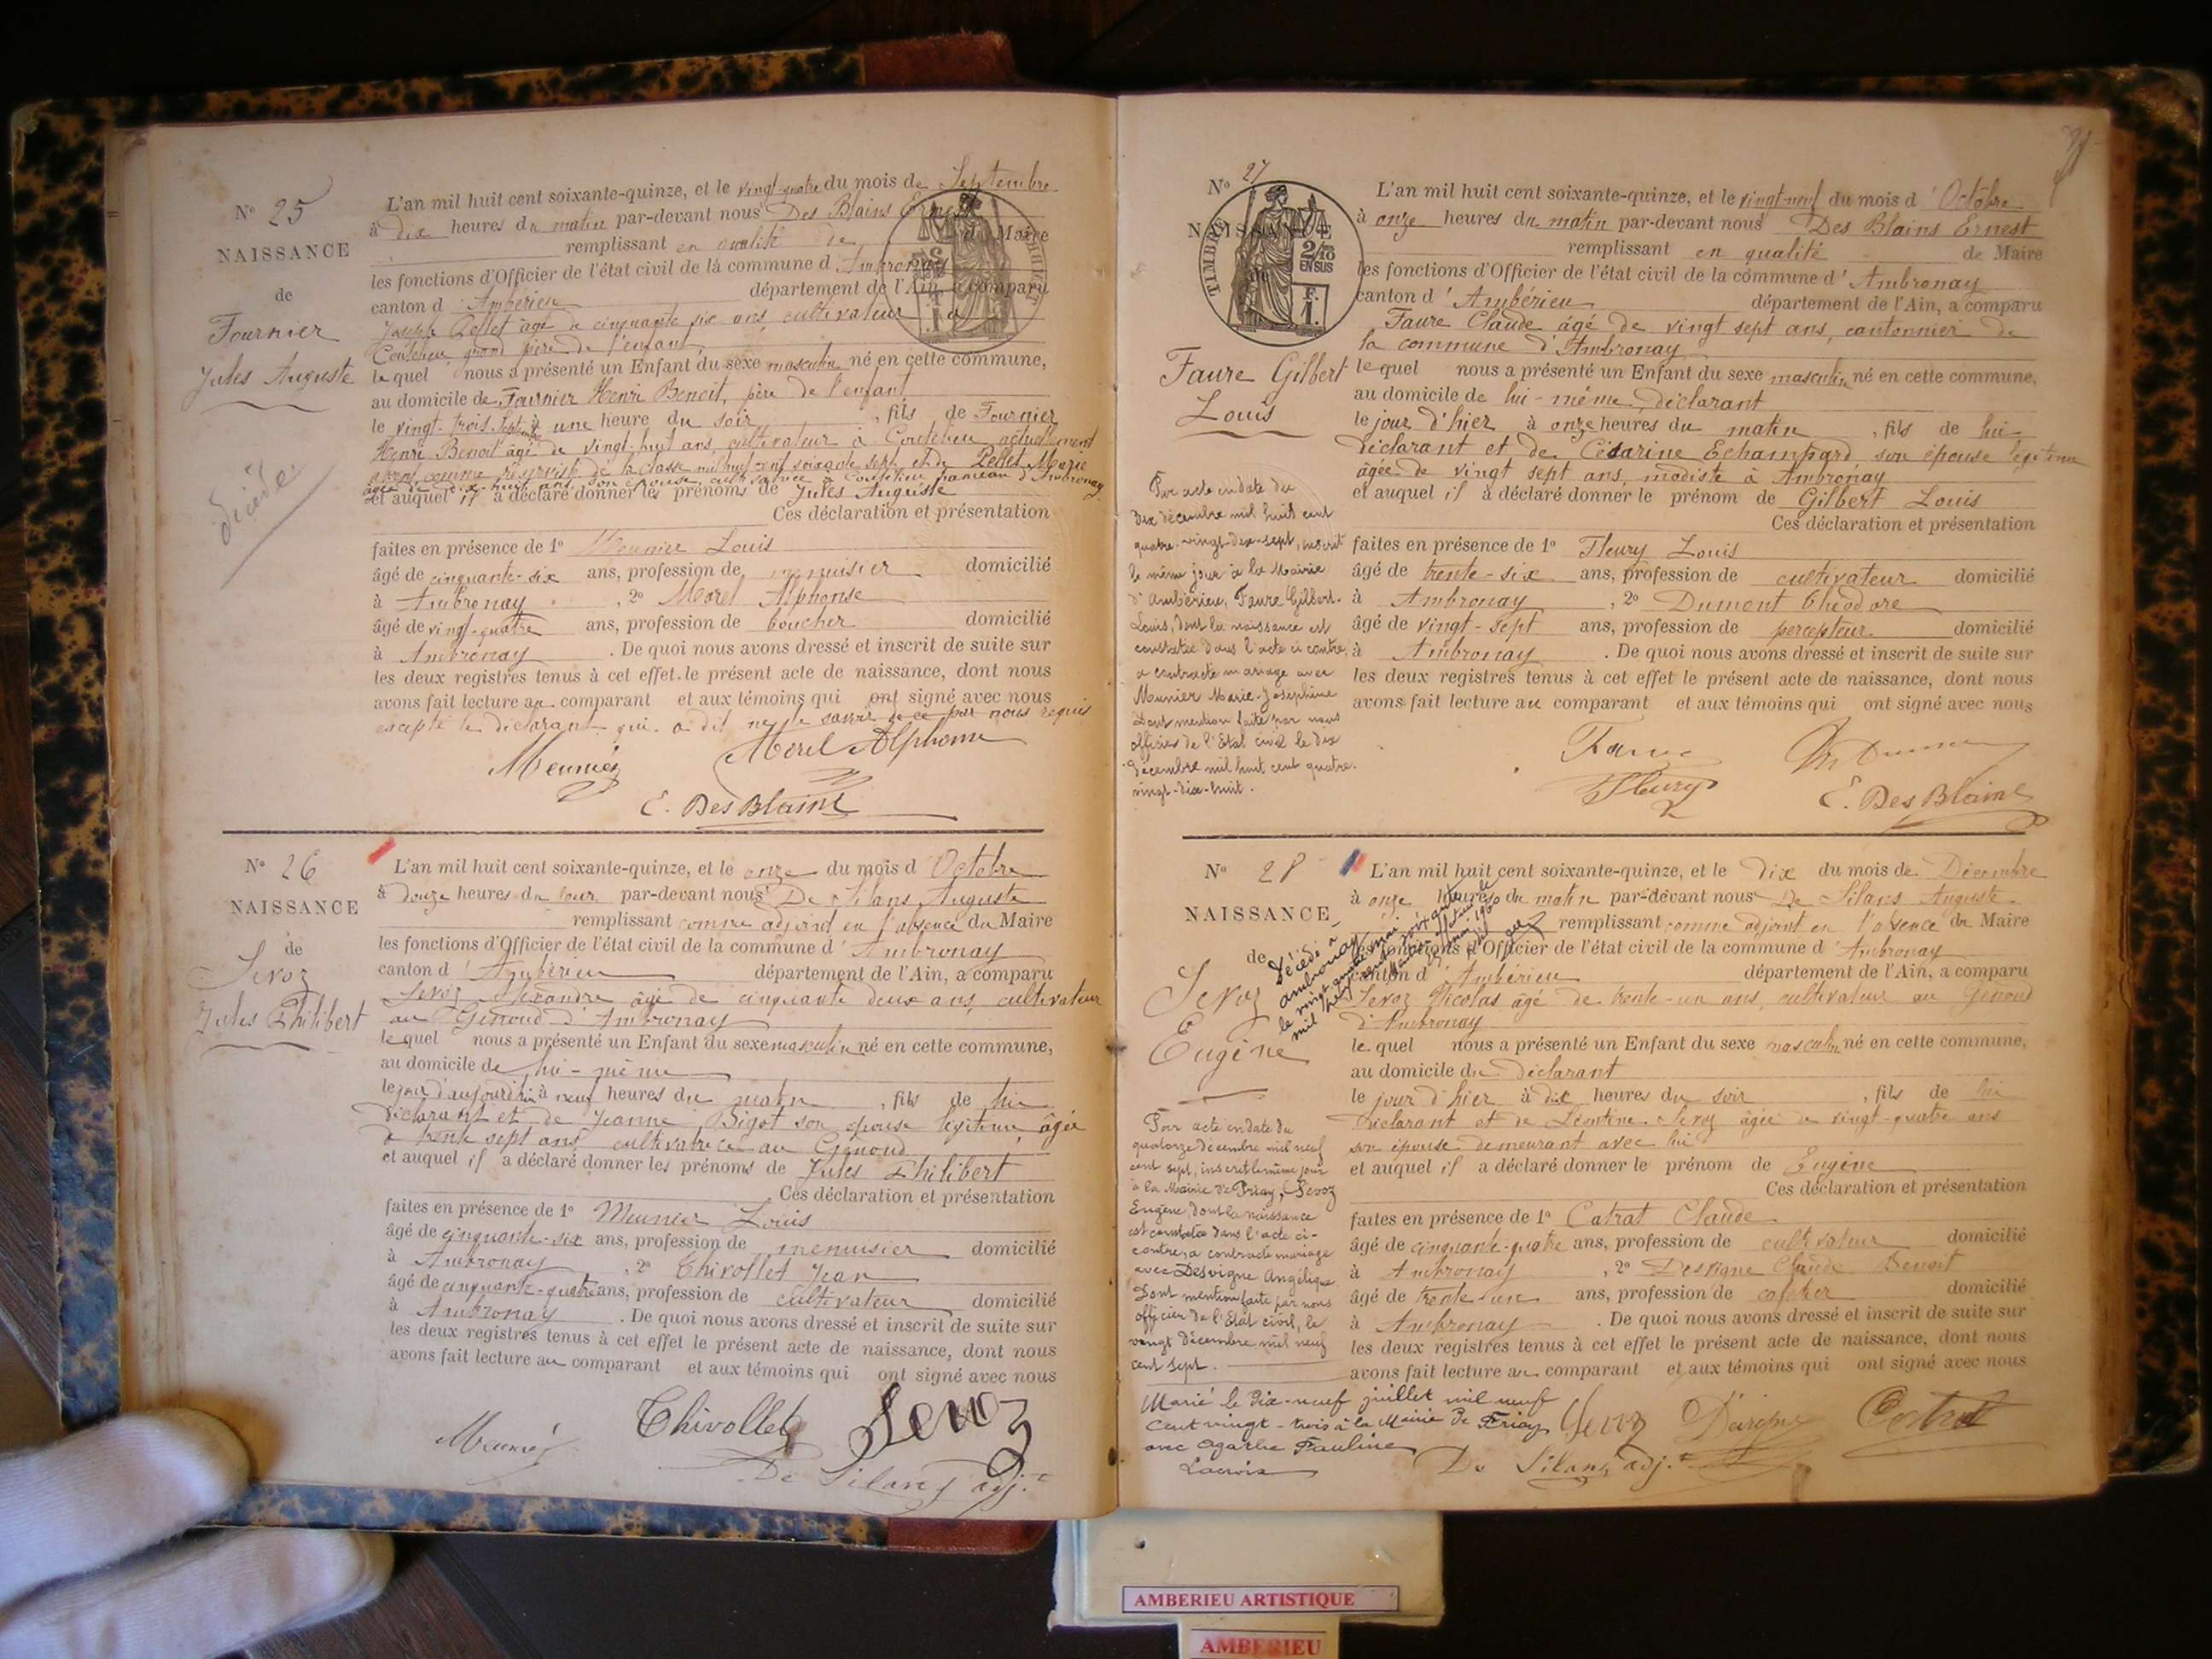 N° 25
NAISSANCE
de
Fournier
Jules Auguste
décédé
L'an mil huit cent soixante-quinze, et le vingt-quatre du mois de Septembre
à dix heures du matin par-devant nous Des Blains Ernest
remplissant en qualité de Maire
les fonctions d'Officier de l'état civil de la commune d'Ambronay
canton d'Ambérieu département de l'Ain, a comparu
Joseph Pellet âgé de cinquante six ans cultivateur à
Coutelieu grand père de l'enfant
lequel nous a présenté un Enfant du sexe masculin né en cette commune,
au domicile de Fournier Henri Benoit, père de l'enfant
le vingt-trois Septembre à une heure du soir, fils de Fournier
Henri Benoit âgé de vingt-huit ans, cultivateur à Coutelieu actuellement
comme réserviste de la classe mil huit cent soixante sept et de Pellet Marie
âgée de dix-huit ans, son épouse, cultivatrice à Coutelieu hameau d'Ambronay
et auquel il a déclaré donner les prénoms de Jules Auguste
Ces déclaration et présentation
faites en présence de 1° Meunier Louis
âgé de cinquante-six ans, profession de menuisier domicilié
à Ambronay, 2° Morel Alphonse
âgé de vingt-quatre ans, profession de boucher domicilié
à Ambronay. De quoi nous avons dressé et inscrit de suite sur
les deux registres tenus à cet effet le présent acte de naissance, dont nous
avons fait lecture au comparant et aux témoins qui ont signé avec nous
excepté le déclarant qui a dit ne le savoir de ce par nous requis
Meunier
Morel Alphonse
E. Des Blains
N° 26
NAISSANCE
de
Sevoz
Jules Philibert
L'an mil huit cent soixante-quinze, et le onze du mois d'Octobre
à douze heures du jour par-devant nous De Silans Auguste
remplissant comme adjoint en l'absence du Maire
les fonctions d'Officier de l'état civil de la commune d'Ambronay
canton d'Ambérieu département de l'Ain, a comparu
Sevoz Alexandre âgé de cinquante deux ans, cultivateur
au Genoud d'Ambronay
lequel nous a présenté un Enfant du sexe masculin né en cette commune,
au domicile de lui-même
le jour d'aujourd'hui à neuf heures du matin, fils de lui
déclarant et de Jeanne Bigot son épouse légitime, âgée
de trente sept ans, cultivatrice au Genoud
et auquel il a déclaré donner les prénoms de Jules Philibert
Ces déclaration et présentation
faites en présence de 1° Meunier Louis
âgé de cinquante-six ans, profession de menuisier domicilié
à Ambronay, 2° Chivollet Jean
âgé de cinquante-quatre ans, profession de cultivateur domicilié
à Ambronay. De quoi nous avons dressé et inscrit de suite sur
les deux registres tenus à cet effet le présent acte de naissance, dont nous
avons fait lecture au comparant et aux témoins qui ont signé avec nous
Meunier
Chivollet
Sevoz
De Silans adj.t
N° 27
NAISSANCE
de
TIMBRE
2/10
EN SUS
F.
1.
Faure Gilbert
Louis
Par acte en date du
dix décembre mil huit cent
quatre-vingt-dix-sept, inscrit
le même jour à la Mairie
d'Ambérieu, Faure Gilbert-
Louis, dont la naissance est
constatée dans l'acte ci-contre,
a contracté mariage avec
Meunier Marie-Joséphine
Dont mention faite par nous
officier de l'Etat civil le dix
décembre mil huit cent quatre-
vingt-dix-huit.
L'an mil huit cent soixante-quinze, et le vingt-neuf du mois d'Octobre
à onze heures du matin par-devant nous Des Blains Ernest
remplissant en qualité de Maire
les fonctions d'Officier de l'état civil de la commune d'Ambronay
canton d'Ambérieu département de l'Ain, a comparu
Faure Claude âgé de vingt sept ans, cantonnier de
la commune d'Ambronay
lequel nous a présenté un Enfant du sexe masculin né en cette commune,
au domicile de lui-même, déclarant
le jour d'hier à onze heures du matin, fils de lui-
déclarant et de Césarine Echampard son épouse légitime
âgée de vingt sept ans, modiste à Ambronay
et auquel il a déclaré donner le prénom de Gilbert Louis
Ces déclaration et présentation
faites en présence de 1° Fleury Louis
âgé de trente-six ans, profession de cultivateur domicilié
à Ambronay, 2° Dumont Théodore
âgé de vingt-sept ans, profession de percepteur domicilié
à Ambronay. De quoi nous avons dressé et inscrit de suite sur
les deux registres tenus à cet effet le présent acte de naissance, dont nous
avons fait lecture au comparant et aux témoins qui ont signé avec nous
Faure
Fleury
E. Des Blains
N° 28
NAISSANCE
de
Sevoz
Eugène
Décédé à
Ambronay
le vingt quatre mai
mil neuf cent soixante
Pour acte en date du
quatorze décembre mil neuf
cent sept, inscrit le même jour
à la Mairie de Priay, Sevoz
Eugène dont la naissance
est constatée dans l'acte ci-
contre, a contracté mariage
avec Desvigne Angélique
Dont mention faite par nous
officier de l'Etat civil, le
vingt décembre mil neuf
cent sept.
Marié le dix-neuf juillet mil neuf
cent vingt-trois à la Mairie de Priay
avec Agathe Pauline
Lacroix
L'an mil huit cent soixante-quinze, et le dix du mois de Décembre
à onze heures du matin par-devant nous De Silans Auguste
remplissant comme adjoint en l'absence du Maire
les fonctions d'Officier de l'état civil de la commune d'Ambronay
canton d'Ambérieu département de l'Ain, a comparu
Sevoz Nicolas âgé de trente-un ans, cultivateur au Genoud
d'Ambronay
lequel nous a présenté un Enfant du sexe masculin né en cette commune,
au domicile du déclarant
le jour d'hier à dix heures du soir, fils de lui
déclarant et de Léontine Sevoz âgée de vingt-quatre ans
son épouse demeurant avec lui
et auquel il a déclaré donner le prénom de Eugène
Ces déclaration et présentation
faites en présence de 1° Catrat Claude
âgé de cinquante-quatre ans, profession de cultivateur domicilié
à Ambronay, 2° Desvigne Claude Benoit
âgé de trente-un ans, profession de domicilié
à Ambronay. De quoi nous avons dressé et inscrit de suite sur
les deux registres tenus à cet effet le présent acte de naissance, dont nous
avons fait lecture au comparant et aux témoins qui ont signé avec nous
Sevoz
Catrat
De Silans adj.t
AMBERIEU ARTISTIQUE
AMBERIEU